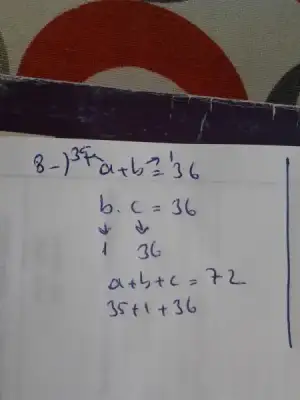 8-) 35 a+b=36 1
b.c=36
↓ ↓
1 36
a+b+c=72
35+1+36